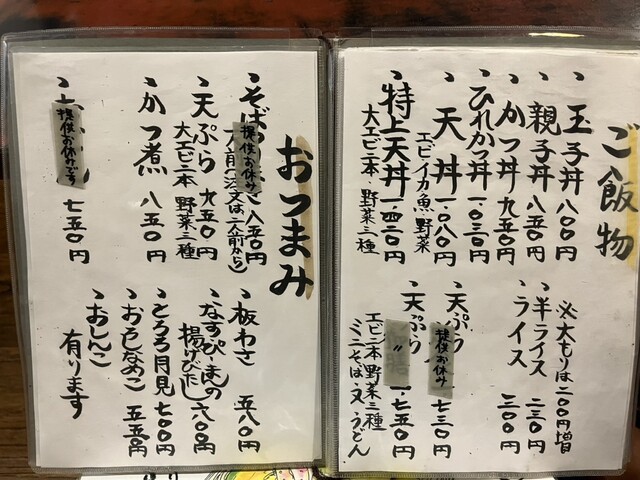 ご飯物
、玉子丼 八〇〇円
、親子丼 八五〇円
、かつ丼 九五〇円
、ひれかつ丼 一、〇三〇円
、天丼 一、〇八〇円
エビ イカ 魚 野菜
、特上天丼 一、四二〇円
大エビ二本 野菜三種
※大もりは二〇〇円増
、半ライス 二三〇円
、ライス 三〇〇円
、天ぷら
提供お休み
七三〇円
、天ぷら
〃
一、七五〇円
エビ二本 野菜三種
ミニそば又うどん
おつまみ
、そば
提供お休み
八五〇円
、天ぷら 九五〇円
大エビ二本 野菜三種
、かつ煮 八五〇円
提供お休みです
七五〇円
、板わさ 五八〇円
、なすぴーまんの
揚げびたし 六八〇円
、とろろ月見 七〇〇円
、おろしなめこ 五五〇円
、おしんこ
有ります